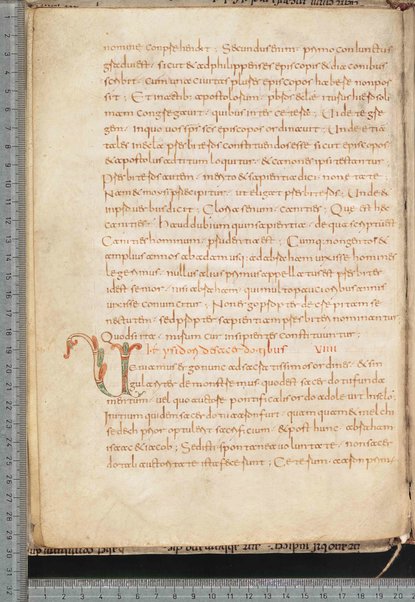 nomine conprehendit; Secundus enim primo coniunctus
gradui est; sicut & ad philippenses episcopis & diaconibus
scribit; cum una ciuitas plures episcopos habere non pos
sit; Et in actib; apostolorum; pbros ecclae iturus hierosoli
mam congregauit; quibus inter cetera; Uidete gre
gem; in quo uos sps scs episcopos ordinauit; Unde etiā
tales in ecla presbiteros constituendos esse sicut episcopos
& apostolus ad titum loquitur; & canones ipsi testantur;
Presbiteros autem; merito & sapientia dici; non aetate;
Nam & moysi precipitur; ut eligat presbiteros; Unde &
in prouerbiis dicit; Gloria senum; canities; Que est hec
canities; Haud dubium quin sapientia; de qua scriptū est
Canities hominum; prudentia est; Cumq; nongentos &
amplius annos ab adam usq; ad abraham uixisse homines
legerimus; nullus alius primus appellatus est presbiter
id est senior; nisi abraham; qui multo paucioribus annis
uixisse conuincitur; Non ergo propter decrepitam se
nectutem; sed propter sapientiam presbiteri nominantur
Quod si ita; mirum cur insipientes constituuntur;
Isidori de sacerdotibus VIIII
Ueniamus ergo nunc ad sacratissimos ordines; & sin
gulariter demonstremus quod est sacerdotii funda
mentum; uel quo auctore pontificalis ordo adoleuit in sclō;
Initium quidem sacerdotii aaron fuit; quamquam & melchi
sedech prior optulerit sacrificium; & post hunc abraham
isaac & iacob; Sed isti spontanea uoluntate; non sacer
dotali auctoritate ista fecerunt; Ceterum; aaron prim;